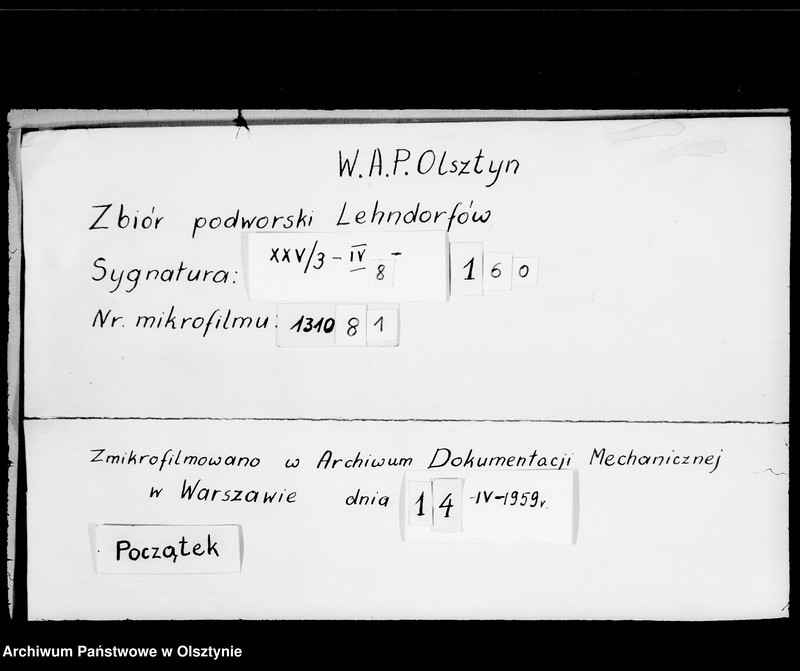 W.A.P. Olsztyn
Zbiór podworski Lehndorfów
Sygnatura: XXV/3 - IV 8 - 160
Nr. mikrofilmu: 1310 81
Zmikrofilmowano w Archiwum Dokumentacji Mechanicznej
w Warszawie dnia 14 -IV-1959r.
Początek
Archiwum Państwowe w Olsztynie